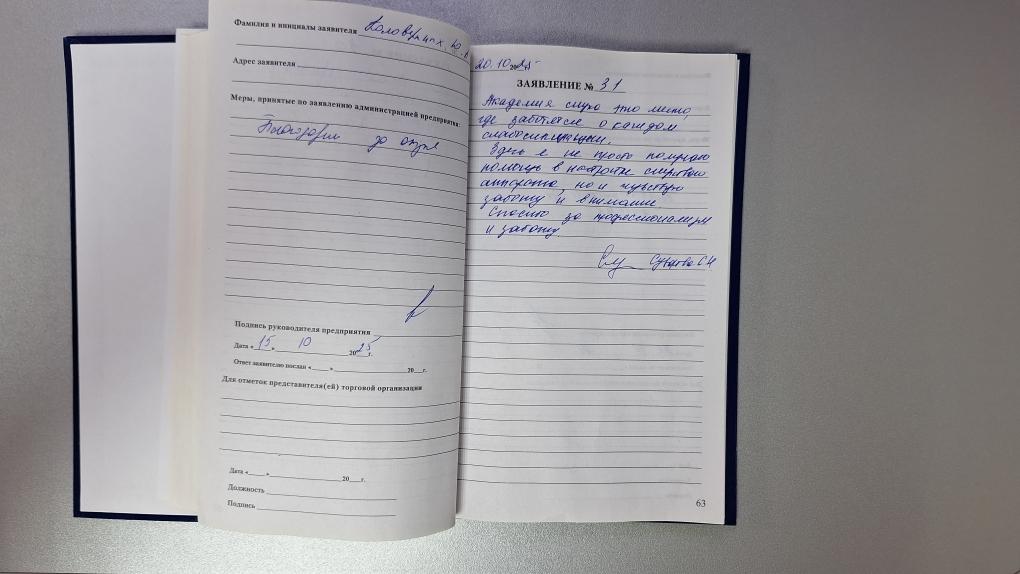 Фамилия и инициалы заявителя Головин
Адрес заявителя
Меры, принятые по заявлению администрацией предприятия:
Благодарим за отзыв
Подпись руководителя предприятия
Дата « 15 » 10 2025г.
Ответ заявителю послан « » 20 г.
Для отметок представителя(ей) торговой организации
Дата « » 20 г.
Должность
Подпись
20.10.2025г
ЗАЯВЛЕНИЕ № 31
Академия слуха это место,
где заботятся о каждом
слабослышащем.
Здесь я не просто получаю
помощь в настройке слухового
аппарата, но и чувствую
заботу и внимание.
Спасибо за профессионализм
и заботу.
63